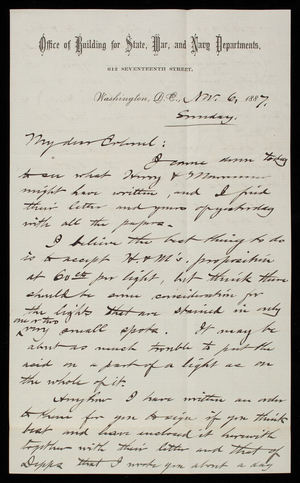 Office of Building for State, War, and Navy Departments,
613 SEVENTEENTH STREET,
Washington, D.C., Nov. 6, 1887.
Sunday.
My dear Colonel:
I came down today
to see what Henry &
might have written, and I find
their letter and yours of yesterday
with all the papers.
I believe the best thing to do
is to accept H. & M's. proposition
at 60cts per light, but think there
should be some consideration for
the lights that are stained in only
one or two
very small spots. It may be
about as much trouble to put the
acid on a part of a light as on
the whole of it.
Anyhow I have written an order
to them for you to sign if you think
best and have enclosed it herewith
together with their letter and that of
Depps that I wrote you about a day